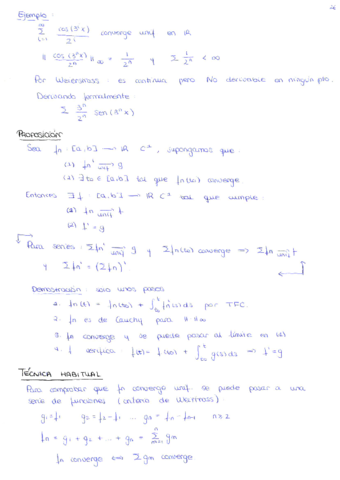 Ejemplo:
∞ Σ i=1 cos(3ⁿx)/2ⁱ converge unif en ℝ
‖ cos(3ⁿx)/2ⁿ ‖∞ = 1/2ⁿ y Σ 1/2ⁿ < ∞
Por Weierstrass: es continua pero NO derivable en ningún pto.
Derivando formalmente
Σ 3ⁿ/2ⁿ sen(3ⁿx)
PROPOSICIÓN
Sea fn: [a,b] → ℝ C¹, supongamos que:
(1) fn' → unif g
(2) ∃ t0 ∈ [a,b] tal que fn(t0) converge
Entonces ∃ f: [a,b] → ℝ C¹ tal que cumple:
(1) fn → unif f
(2) f' = g
Para series: Σfn' → unif g y Σfn(t0) converge ⇒ Σfn → unif f
y Σfn' = (Σfn)'
Demostración: solo unos pasos
1. fn(t) = fn(t0) + ∫t0^t fn'(s)ds por TFC.
2. fn es de Cauchy para ‖·‖∞
3. fn converge y se puede pasar al límite en (1)
4. f verifica f(t) = f(t0) + ∫t0^t g(s)ds ⇒ f' = g
TÉCNICA HABITUAL
Para comprobar que fn converge unif. se puede pasar a una
serie de funciones (criterio de Weierstrass)
g1 = f1 g2 = f2 - f1 ... gn = fn - fn-1 n ≥ 2
fn = g1 + g2 + ... + gn = Σ m=1 n gm
fn converge ⟺ Σ gm converge